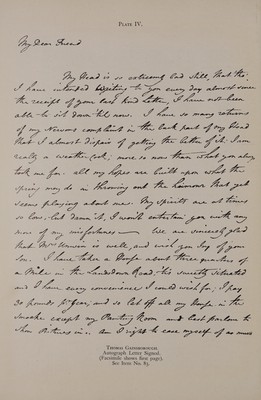 PLATE IV.
My Dear Friend
My Head is so
bad still, that tho'
I have intended writing to you every day almost since
the receipt of your last kind Letter, I have not been
able to sit down till now. I have so many returns
of my Nervous complaint in the back part of my Head
that I almost despair of getting the better of it. I am
really a weather cock; more so now than what you always
took me for. all my hopes are built upon what the
spring may do in
the humour that yet
seems playing about me. My Spirits are at times
so low, but damn it, I won't entertain you with any
more of my misfortunes – We are sincerely glad
that Mrs Unwin is well, and wish you Joy of your
Son. I have taken a House about three quarters of
a Mile in the Lansdown Road; 'tis sweetly situated
and I have every convenience I could wish for; I pay
30 pounds pr year; and so Let off all my House in the
Smoake except my Painting Room and best parlour to
Shew Pictures in. Am I right to ease myself of as much
THOMAS GAINSBOROUGH.
Autograph Letter Signed.
(Facsimile shows first page).
See Item No. 85.